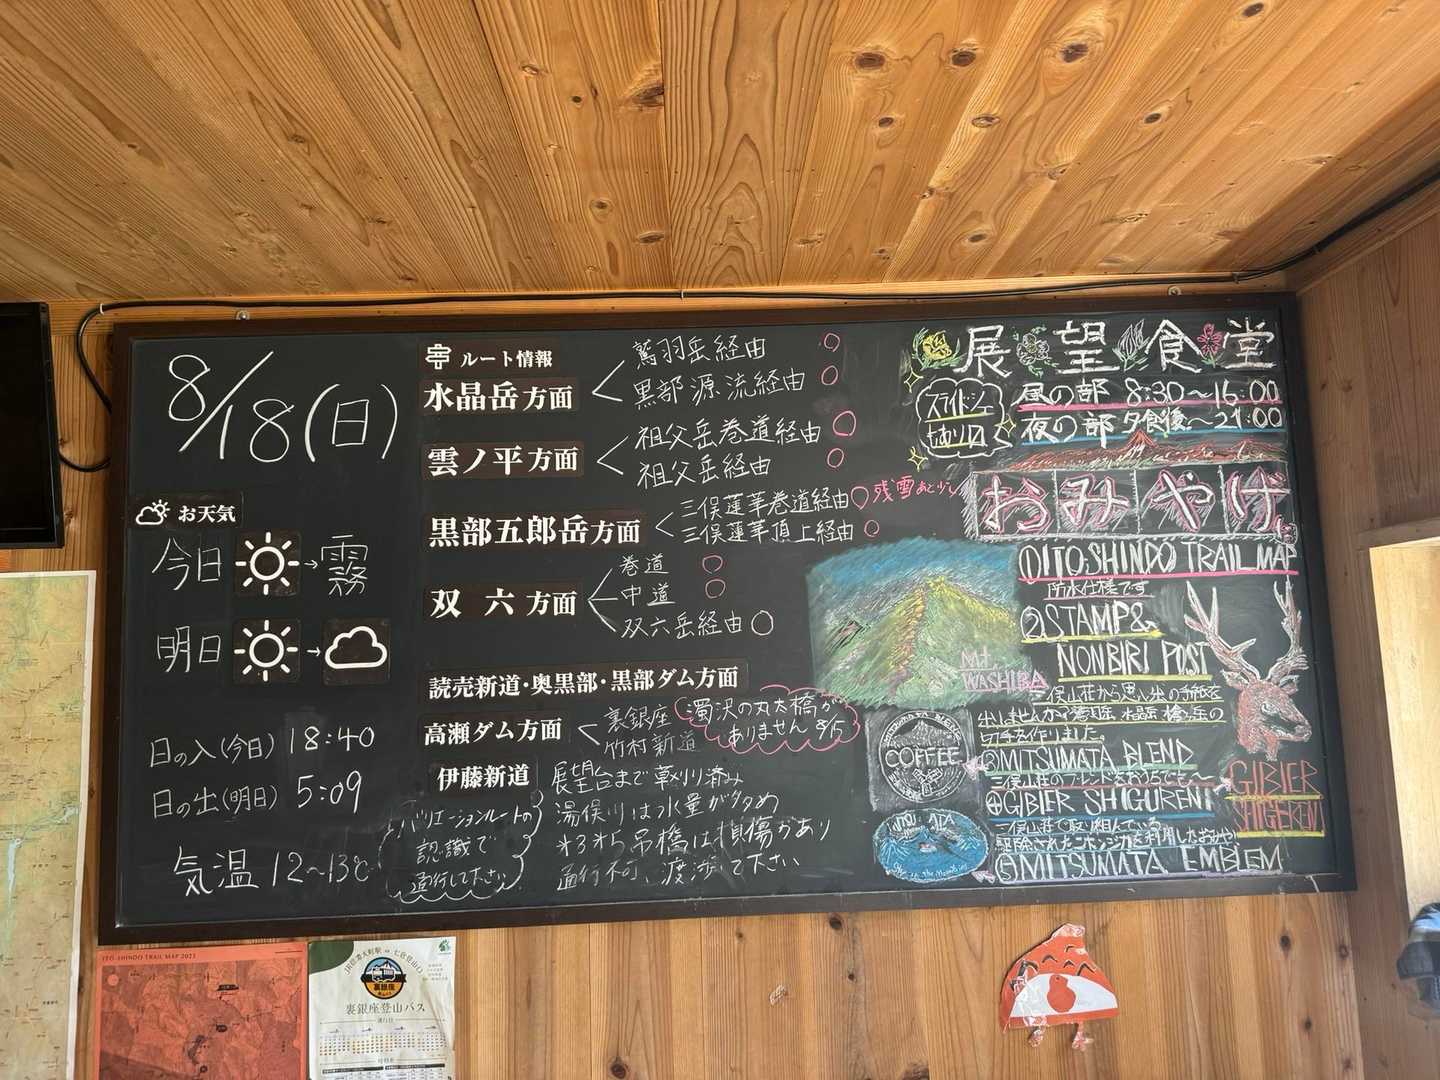 8/18(日)
お天気
今日 → 霧
明日 →
日の入(今日) 18:40
日の出(明日) 5:09
気温 12~13℃
ルート情報
水晶岳方面
鷲羽岳経由 ○
黒部源流経由 ○
雲ノ平方面
祖父岳巻道経由 ○
祖父岳経由 ○
黒部五郎岳方面
三俣蓮華巻道経由○ 残雪あと少し
三俣蓮華頂上経由 ○
双六方面
巻道 ○
中道 ○
双六岳経由 ○
読売新道・奥黒部・黒部ダム方面
高瀬ダム方面
裏銀座
竹村新道
濁沢の丸太橋が
ありません 8/15
伊藤新道
展望台まで草刈り済み
湯俣川は水量が多め
第3第5吊橋は損傷があり
通行不可、渡渉して下さい
バリエーションルートの
認識で
通行して下さい
展望食堂
スライドショー
もあり
昼の部 8:30~16:00
夜の部 夕食後~21:00
おみやげ
①ITO-SHINDO TRAIL MAP
防水仕様です
②STAMP&
NONBIRI POST
三俣山荘から思い出の手紙を
出しませんか?鷲羽岳 水晶岳 槍ヶ岳の
切手を作りました。
③MITSUMATA BLEND
三俣山荘のブレンドをおうちでも~
④GIBIER SHIGUREN
三俣山荘で取り組んでいる
駆除されたニホンジカを利用したおみやげ
⑤MITSUMATA EMBLEM
Mt.
WASHIBA
COFFEE
GIBIER
SHIGUREN
ITO-SHINDO TRAIL MAP 2023
JR信濃大町駅 ⇔ 七倉登山口
裏銀座
裏銀座登山バス